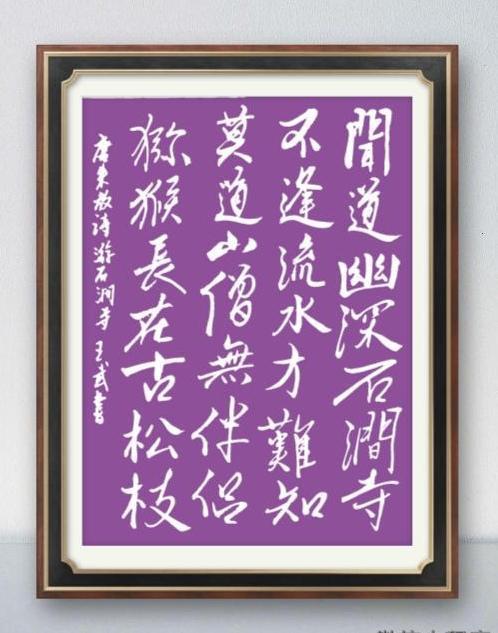 聞道幽深石澗寺
不逢流水才難知
莫道山僧無伴侶
猕猴長在古松枝
唐朱放詩遊石澗寺 王武書